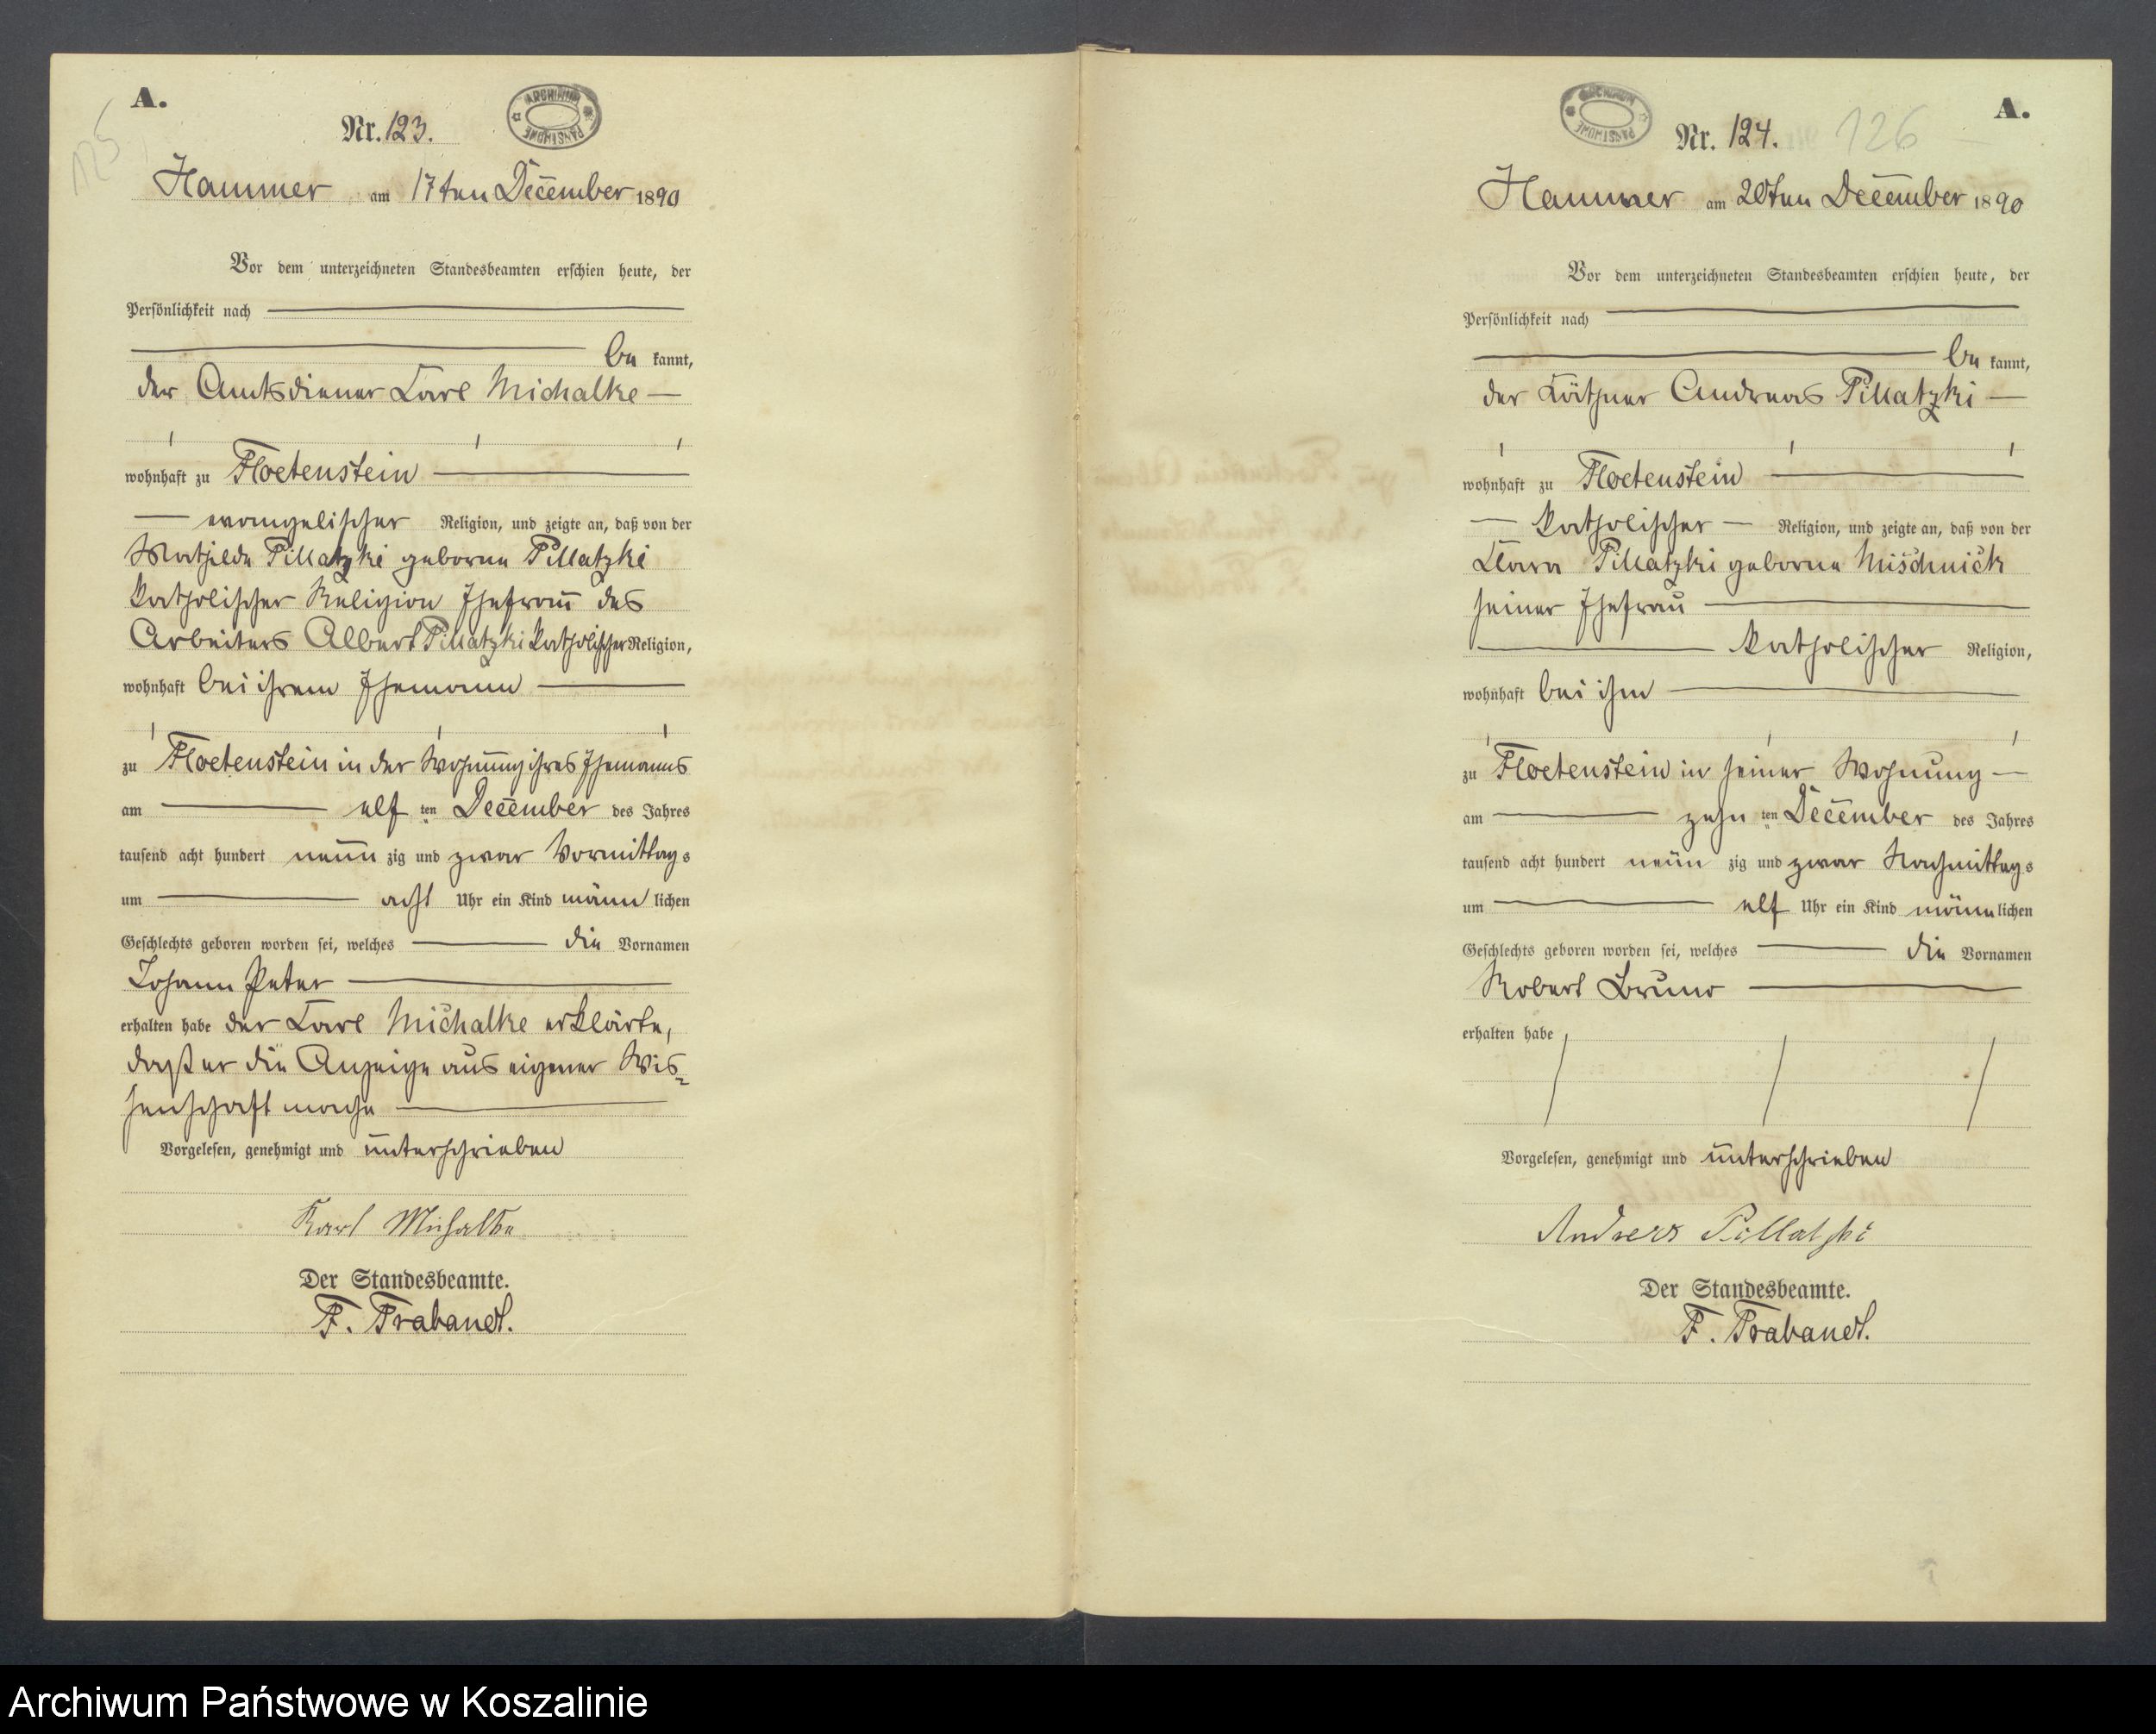 A.
125
Nr. 123.
ARCHIWUM PAŃSTWOWE
Hammer am 17ten December 1890
Vor dem unterzeichneten Standesbeamten erschien heute, der
Persönlichkeit nach
be kannt,
der Amtsdiener Carl Michalke
wohnhaft zu Floetenstein
evangelischer Religion, und zeigte an, daß von der
Mathilde Pillatzki geborne Pillatzki
katholischer Religion Ehefrau des
Arbeiters Albert Pillatzki katholischer Religion,
wohnhaft bei ihrem Ehemann
zu Floetenstein in der Wohnung ihres Ehemanns
am elf ten December des Jahres
tausend acht hundert neun zig und zwar Vormittags
um acht Uhr ein Kind männ lichen
Geschlechts geboren worden sei, welches die Vornamen
Johann Peter
erhalten habe der Carl Michalke erklärte,
daß er die Anzeige aus eigener Wis-
senschaft mache
Vorgelesen, genehmigt und unterschrieben
Karl Michalke
Der Standesbeamte.
F. Trabandt.
A.
ARCHIWUM PAŃSTWOWE
Nr. 124.
126
Hammer am 20ten December 1890
Vor dem unterzeichneten Standesbeamten erschien heute, der
Persönlichkeit nach
be kannt,
der Käthner Andreas Pillatzki
wohnhaft zu Floetenstein
katholischer Religion, und zeigte an, daß von der
Clara Pillatzki geborne Mischnick
seiner Ehefrau
katholischer Religion,
wohnhaft bei ihm
zu Floetenstein in seiner Wohnung
am zehn ten December des Jahres
tausend acht hundert neun zig und zwar Nachmittags
um elf Uhr ein Kind männlichen
Geschlechts geboren worden sei, welches die Vornamen
Robert Bruno
erhalten habe
Vorgelesen, genehmigt und unterschrieben
Andreas Pillatzki
Der Standesbeamte.
F. Trabandt.
Archiwum Państwowe w Koszalinie